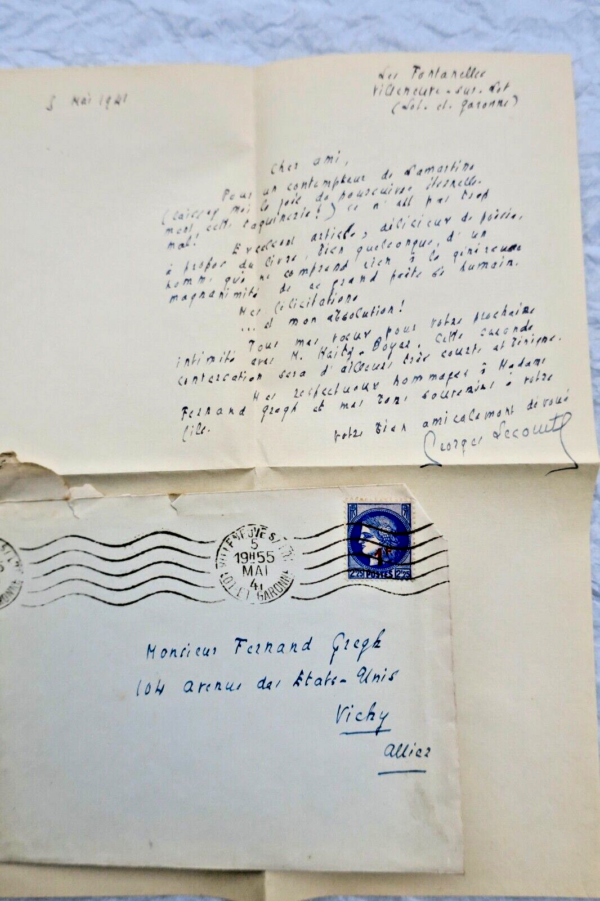 5 Mai 1941
Les Fontanelles
Villeneuve-sur-Lot
(Lot-et-Garonne)
Cher ami,
Pour un contempteur de Lamartine
(laissez moi la joie de poursuivre l'éternelle
mort, cette taquinerie!) ce n'est pas trop
mal!
Excellent article, délicieux de poésie,
à propos du livre, bien quelconque, d'un
homme qui ne comprend rien à la généreuse
magnanimité de ce grand poète si humain.
Mes félicitations
... et mon absolution!
Tous mes vœux pour votre prochaine
intimité avec M. Boyer. Cette seconde
sera d'ailleurs très courte et bénigne.
Mes respectueux hommages à Madame
Fernand Gregh et mes bons souvenirs à votre
fils.
Votre bien amicalement dévoué
Georges Lecomte
VILLENEUVE S/LOT
5
19H55
MAI
41
LOT-ET-GARONNE
1F
2F25 POSTES 2F25
Monsieur Fernand Gregh
104 avenue des États-Unis
Vichy
Allier